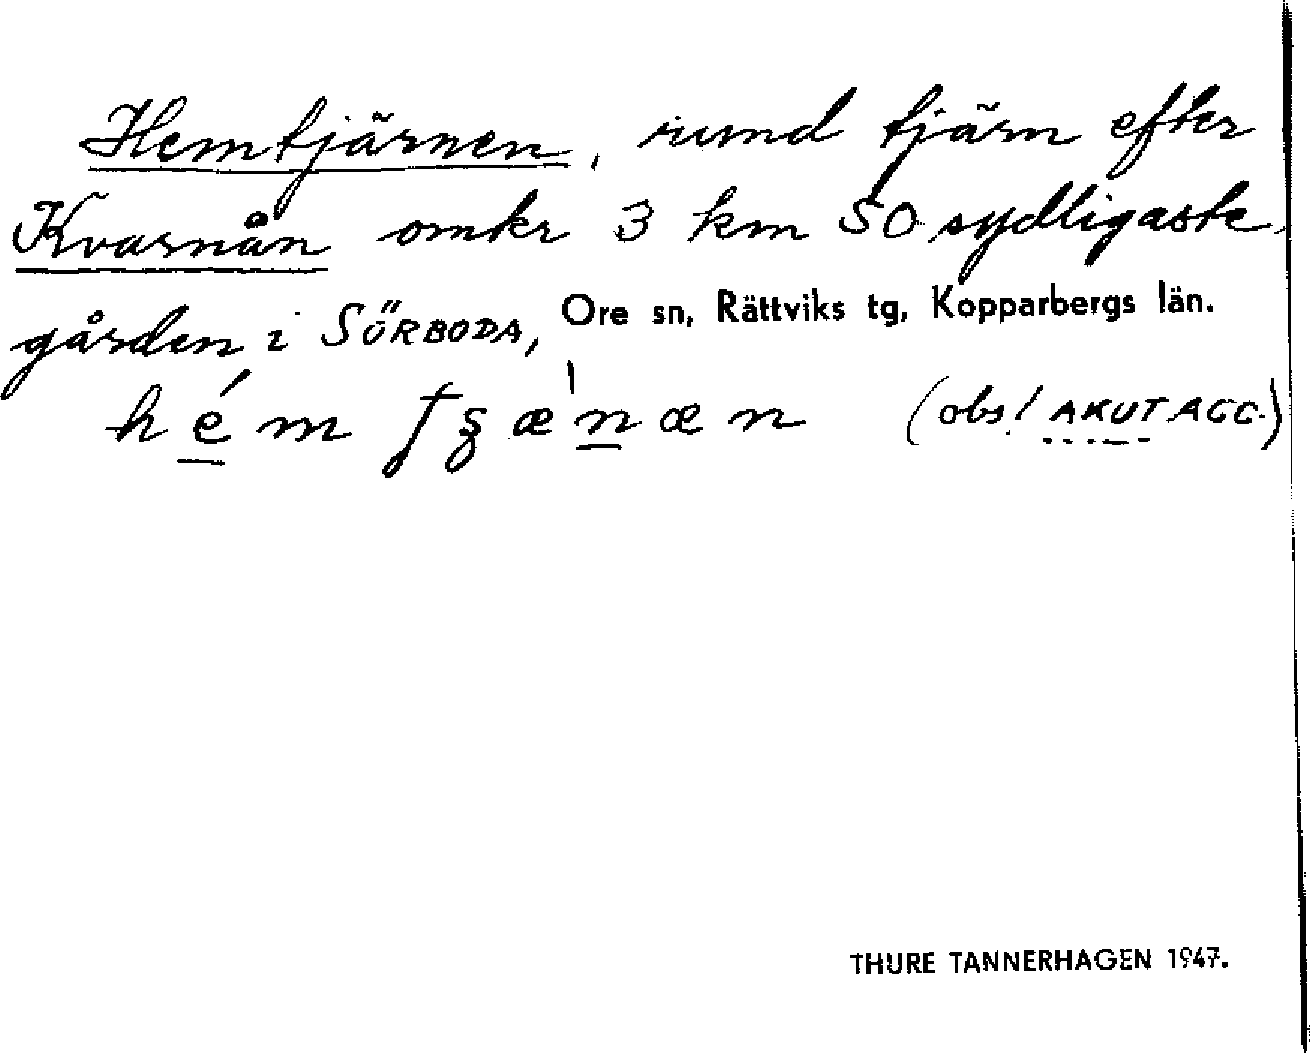 Hemtjärnen, rund tjärn efter
Kvarnån omkr 3 km SO sydligaste
gården i SÖRBODA, Ore sn, Rättviks tg, Kopparbergs län.
(obs! AKUT ACC.)
THURE TANNERHAGEN 1947.